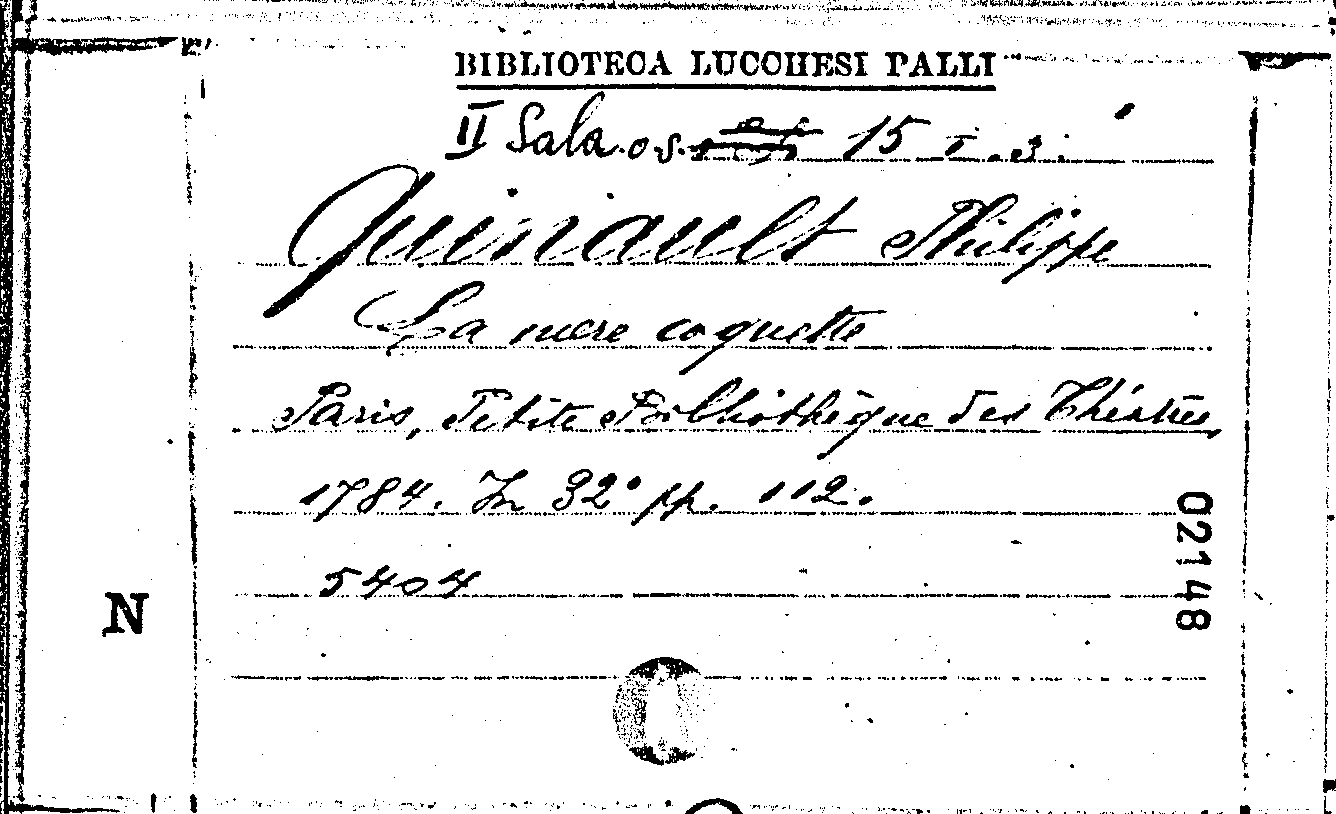 BIBLIOTECA LUCCHESI PALLI
II Sala. os. 15 I. 3.
Quinault Philippe
La mere coquette
Paris, Petite Bibliothèque des Théatres,
1784. In 32° pp. 112.
5404
02148
N